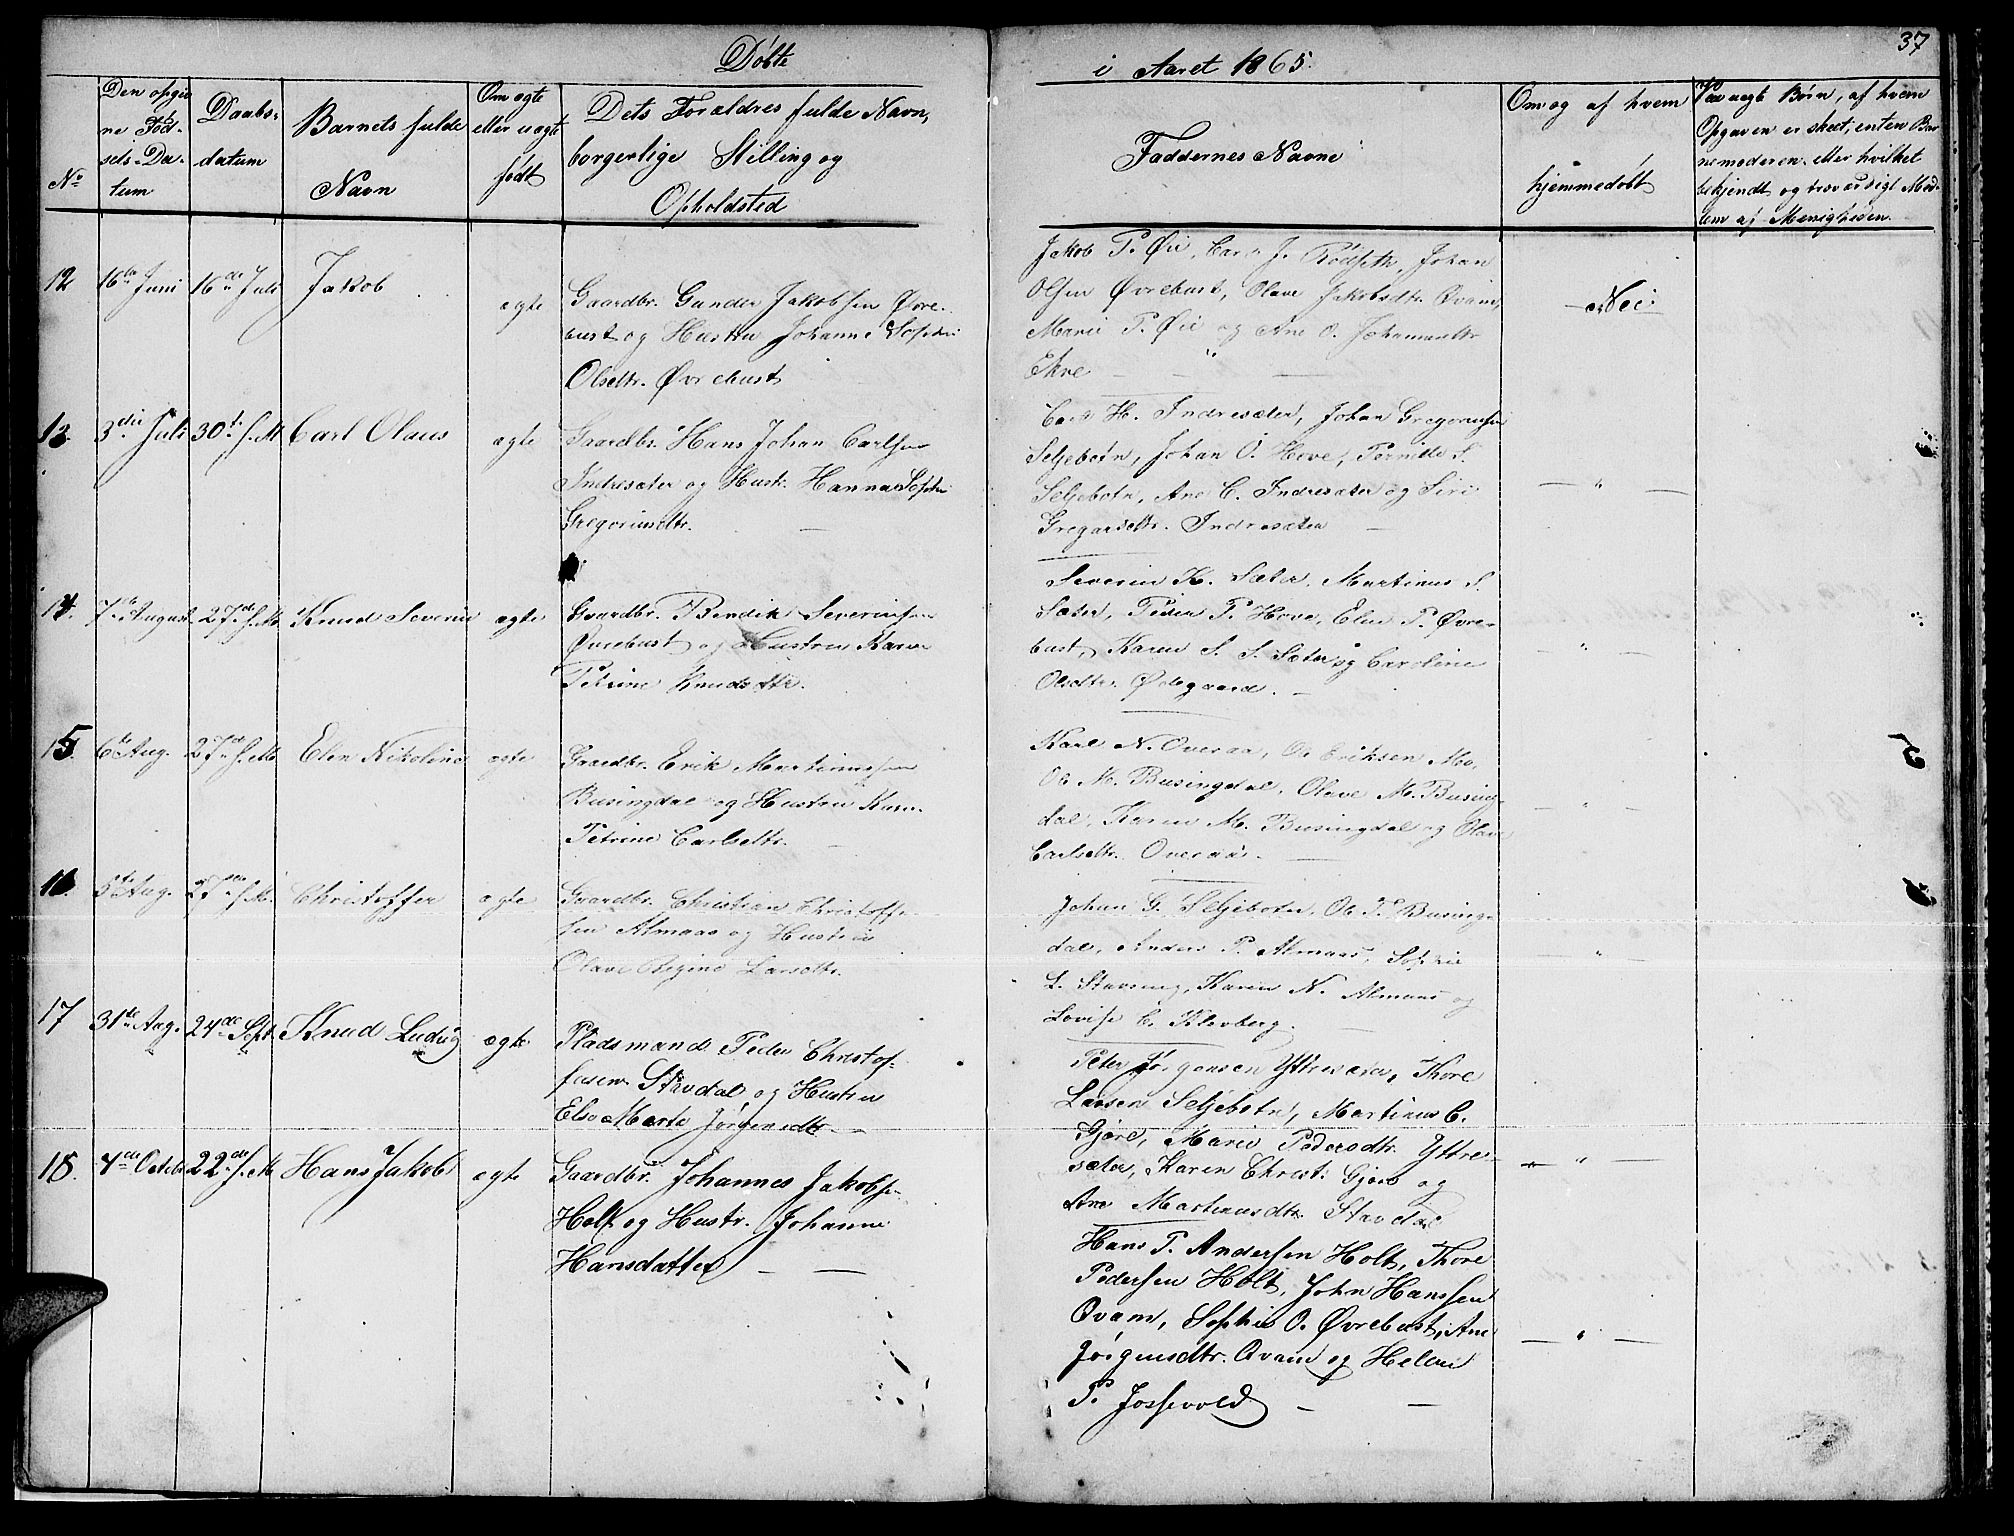 Døbte
i Aaret 1865.
37
No
Den opgiv
ne Fød-
sels-Da-
tum
Daabs-
datum
Barnets fulde
Navn
Om ægte
eller uægte
født
Dets Forældres fulde Navn,
borgerlige Stilling og
Opholdsted
Faddernes Navne
Om og af hvem
hjemmedøbt
Ved uægte Børn, af hvem
Opgaven er skeet, enten Bar
nemoderen eller hvilket
bekjendt og troværdigt Med-
lem af Menigheden.
12
16de Juni
16de Juli
Jakob
ægte
Gaardbr. Gunder Jakobsen Øvre-
bust og Hustru Johanne Sophie
Olsdtr. Øvrebust
Jakob P. Øie, J. Rødseth, Johan
Olsen Øvrebust, Olave Jakobsdtr. Qvam,
Marie P. Øie og Ane O. Johannesdtr.
Ekre
Nei
13.
3die Juli
30te s. M.
Carl Olaus
ægte
Gaardbr. Hans Johan Carlsen
Indresæter og Hustr. Hanna Sophie
Gregoriusdtr.
Carl H. Indresæter, Johan Gregoriussen
Seljebotn, Johan O. Hove, Pernille S.
Seljebotn, Ane C. Indresæter og Siri
Gregarsdtr. Indresæter
— " —
14.
7de August.
27de s. M.
Knud Severin
ægte
Gaardbr. Bendik Severinsen
Øvrebust og Hustru Karen
Petrine Knudsdtr.
Severin K. Sæter, Martinus S.
Sæter, Peder P. Hove, Elen P. Øvre-
bust, Karen S. S. Sæter og Caroline
Olsdtr. Ødegaard.
— " —
15.
6te Aug.
27de s. M.
Elen Nikoline
ægte
Gaardbr. Erik Martinussen
Busingdal og Hustru Karen
Petrine Carlsdtr.
Karl N. Overaa, O. Eriksen Mo,
Ole M. Busingdal, Olave M. Busing-
dal, Karen M. Busingdal og Olave
Carlsdtr. Overaa.
— " —
5
16.
5te Aug.
27de s. M.
Christoffer
ægte
Gaardbr. Christian Christoffer-
sen Almaas og Hustru
Olave Regine Larsdtr.
Johan G. Seljebotn, Ole T. Busing-
dal, Anders P. Almaas, Sophie
L. Stavseng, Karen N. Almaas og
Lovise C. Klovberg.
— " —
17
31te Aug.
24de Sept.
Knud Ludvig
ægte
Pladsmand Peder Christof-
fersen Stavdal og Hustru
Else Marte Jørgensdtr.
Peter Jørgensen Yttresæter, Thore
Larsen Seljebotn, Martinus C.
Gjøre, Marie Pedersdtr. Yttre-
sæter, Karen Christ. Gjøre og
Ane Martinusdtr. Stavdal
— " —
18.
4de Octobr
22de s. M.
Hans Jakob
ægte
Gaardbr. Johannes Jakobsen
Holt og Hustr. Johanne
Hansdatter — —
Hans P. Andersen Holt, Thore
Pedersen Holt, John Hanssen
Qvam, Sophie O. Øvrebust, Ane
Jørgensdtr. Qvam og Helene
P. Jossevold — —
— " —